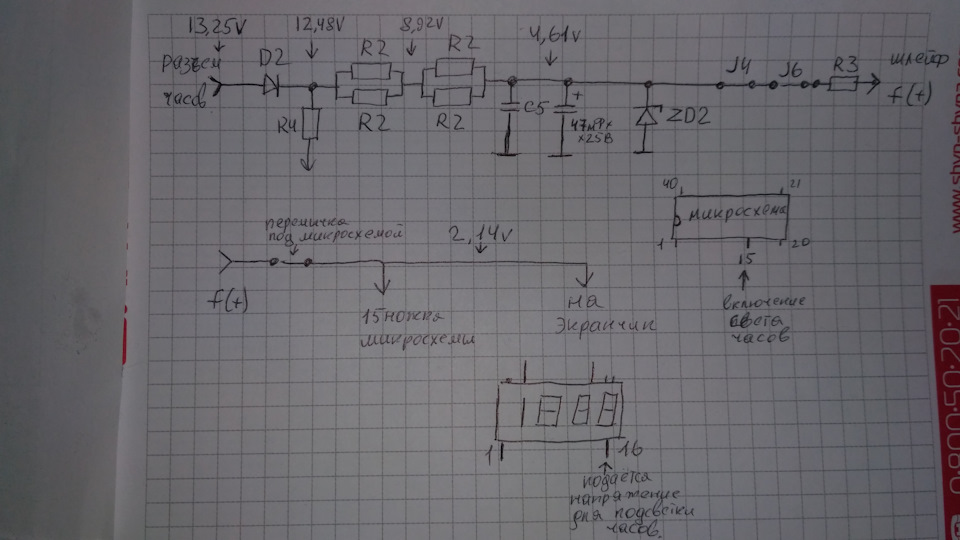 13,25V 12,48V 8,92V 4,61V
разъем часов
D2
R2
R2
R2
R2
R4
C5
+
47мФх
х25В
ZD2
J4
J6
R3
шлейф
f(+)
перемичка
под микросхемой
2,14V
f(+)
15 ножка
микросхемы
на
экранчик
40
21
микросхема
1
20
15
включение
света
часов
1
16
подаётся
напряжение
для подсветки
часов.
www.shyp-shyna
0·800·50·20·21